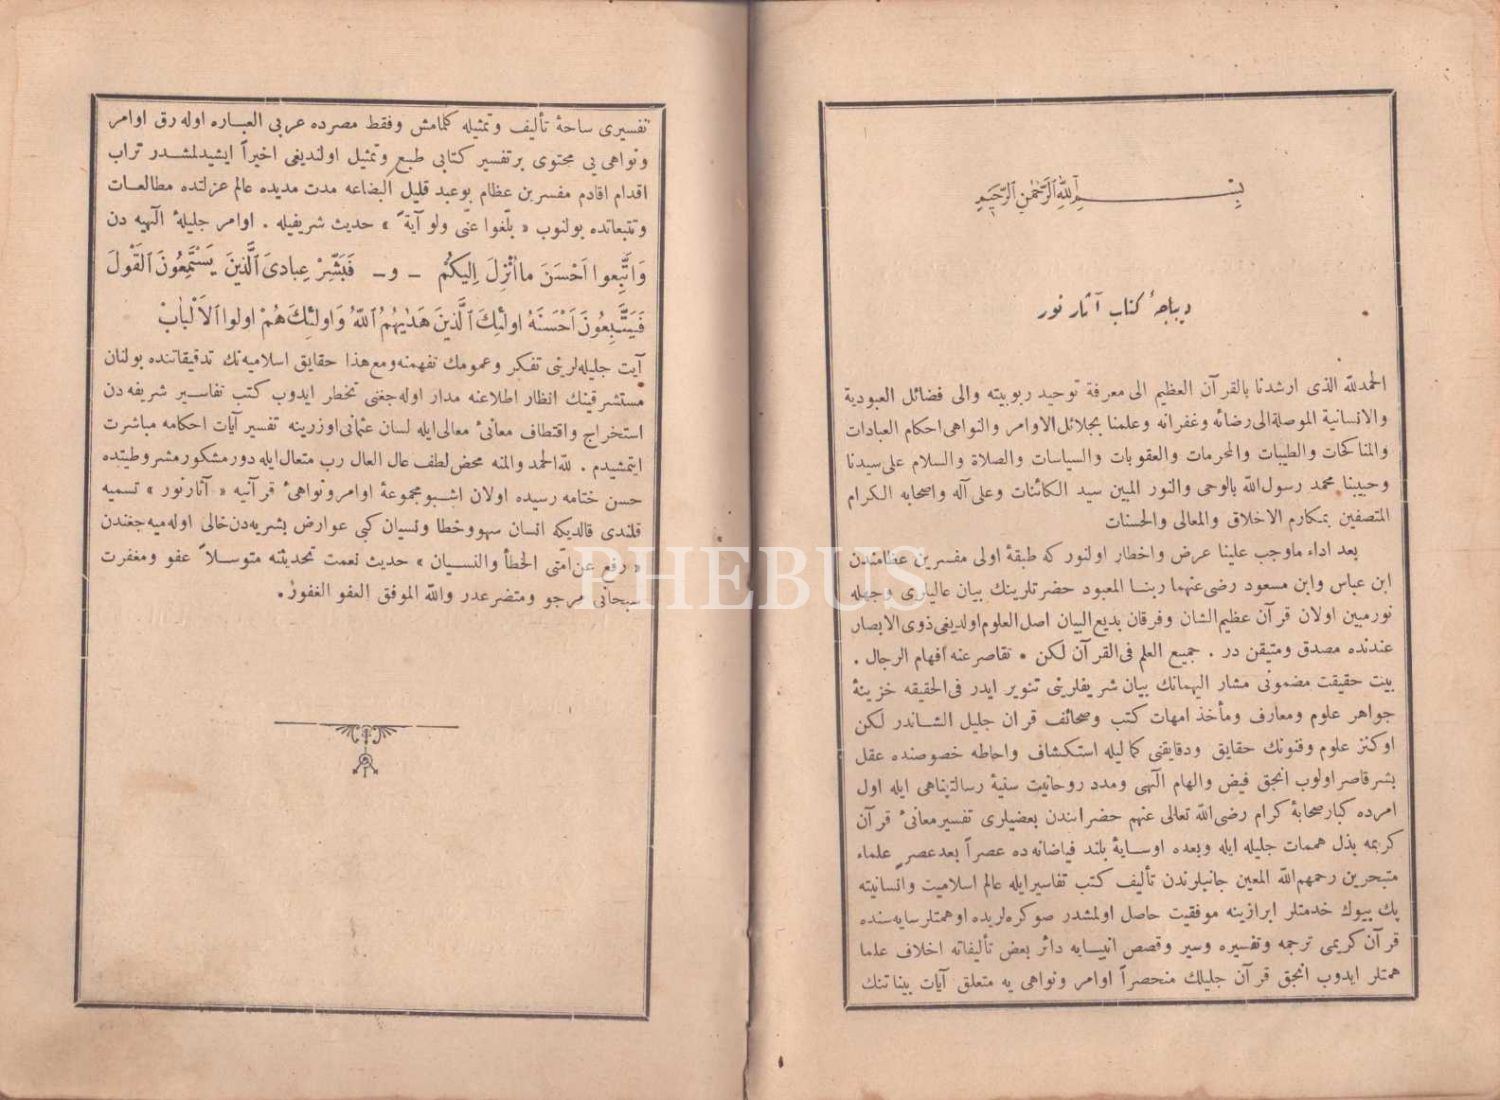 بسم الله الرحمن الرحيم
ديباجۀ كتاب آثار نور
الحمدلله الذى ارشدنا بالقرآن العظيم الى معرفة توحيد ربوبيته والى فضائل العبودية
والانسانية الموصلة الى رضائه وغفرانه وعلمنا بجلائل الاوامر والنواهى احكام العبادات
والمناكحات والطيبات والمحرمات والعقوبات والسياسات والصلاة والسلام على سيدنا
وحبيبنا محمد رسول الله بالوحى والنور المبين سيد الكائنات وعلى آله واصحابه الكرام
المتصفين بمكارم الاخلاق والمعالى والحسنات
بعد اداء ماوجب علينا عرض واخطار اولنور كه طبقۀ اولى مفسرين عظامندن
ابن عباس وابن مسعود رضى عنهما ربنا المعبود حضرتلرينك بيان عاليلرى وجهله
نورمبين اولان قرآن عظيم الشان وفرقان بديع البيان اصل العلوم اولديغى ذوى الابصار
عندنده مصدق ومتيقن در . جميع العلم فى القرآن لكن • تقاصر عنه افهام الرجال .
بيت حقيقت مضمونى مشار اليهمانك بيان شريفلرينى تنوير ايدر فى الحقيقه خزينۀ
جواهر علوم ومعارف ومأخذ امهات كتب وصحائف قران جليل الشاندر لكن
اوكنز علوم وفنونك حقايق ودقايقنى كماليله استكشاف واحاطه خصوصنده عقل
بشر قاصر اولوب انجق فيض والهام الهى ومدد روحانيت سنيۀ رسالتپناهى ايله اول
امرده كبار صحابۀ كرام رضى الله تعالى عنهم حضراتندن بعضيلرى تفسير معانئ قرآن
كريمه بذل همات جليله ايله وبعده اوسايۀ بلند فياضانه ده عصراً بعد عصر علماء
متبحرين رحمهم الله المعين جانبلرندن تأليف كتب تفاسير ايله عالم اسلاميت وانسانيته
پك بيوك خدمتلر ابرازينه موفقيت حاصل اولمشدر صوكره لريده اوهمتلر سايه سنده
قرآن كريمى ترجمه وتفسيره وسير وقصص انبيايه دائر بعض تأليفاته اخلاف علما
همتلر ايدوب انجق قرآن جليلك منحصراً اوامر ونواهى يه متعلق آيات بيناتنك
تفسيرى ساحۀ تأليف وتمثيله كلمامش وفقط مصرده عربى العباره اوله رق اوامر
ونواهى يى محتوى برتفسير كتابى طبع وتمثيل اولنديغى اخيراً ايشيدلمشدر تراب
اقدام اقادم مفسرين عظام بوعبد قليل البضاعه مدت مديده عالم عزلتده مطالعات
وتتبعاتده بولنوب « بلّغوا عنّى ولو آيةً » حديث شريفيله . اوامر جليلۀ الهيه دن
وَاتَّبِعوا اَحْسَنَ ما اُنْزِلَ اِلَيكُمْ - و - فَبَشِّرْ عِبادىَ اَلَّذينَ يَسْتَمِعُونَ اَلقَوْلَ
فَيَتَّبِعُونَ اَحْسَنَهُ اولئِكَ اَلَّذينَ هَدٰيهُمُ اَللّٰهُ وَاولئِكَ هُمْ اولوا اَلاَلْبابْ
آيت جليله لرينى تفكر وعمومك تفهمنه ومع هذا حقايق اسلاميه نك تدقيقاتنده بولنان
مستشرقينك انظار اطلاعنه مدار اوله جغنى تخطر ايدوب كتب تفاسير شريفه دن
استخراج واقتطاف معانئ معالى ايله لسان عثمانى اوزرينه تفسير آيات احكامه مباشرت
ايتمشيدم . لله الحمد والمنه محض لطف عال العال رب متعال ايله دور مشكور مشروطيتده
حسن ختامه رسيده اولان اشبو مجموعۀ اوامر ونواهئ قرآنيه « آثار نور » تسميه
قلندى قالديكه انسان سهو وخطا ونسيان كبى عوارض بشريه دن خالى اوله ميه جغندن
« رفع عن امّتى الخطأ والنسيان » حديث نعمت تحديثنه متوسلاً عفو ومغفرت
سبحانى مرجو ومتضرعدر والله الموفق العفو الغفور.
PHEBUS